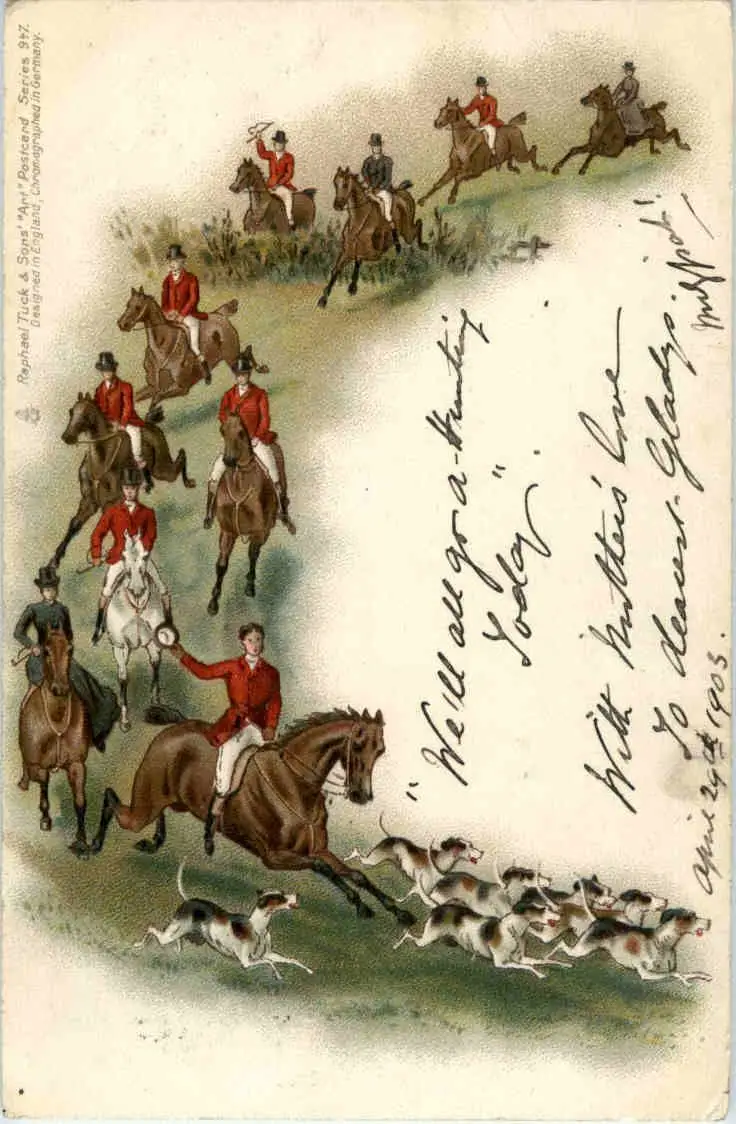 Raphael Tuck & Sons' "Art" Postcard Series 947.
Designed in England, Chromographed in Germany.
"We'll all go a-Hunting
Today".
With Mother's love
To dearest Gladys.
April 29th 1903.